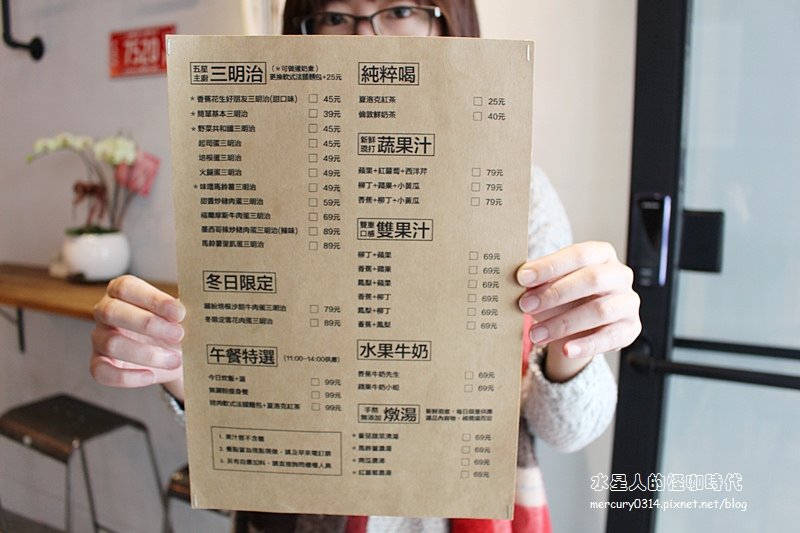 7520
五星主廚 三明治 (*可做蛋奶素)
更換軟式法國麵包+25元
*香蕉花生好朋友三明治(甜口味) □ 45元
*簡單基本三明治 □ 39元
*野菜共和國三明治 □ 45元
起司蛋三明治 □ 45元
培根蛋三明治 □ 49元
火腿蛋三明治 □ 49元
*味噌馬鈴薯三明治 □ 49元
甜醬炒豬肉蛋三明治 □ 59元
福爾摩斯牛肉蛋三明治 □ 69元
墨西哥辣炒豬肉蛋三明治(辣味) □ 89元
馬鈴薯里肌蛋三明治 □ 89元
冬日限定
繽紛培根沙朗牛肉蛋三明治 □ 79元
冬限定雪花肉蛋三明治 □ 89元
午餐特選 (11:00~14:00供應)
今日炊飯+湯 □ 99元
無澱粉瘦身餐 □ 99元
豬肉軟式法國麵包+夏洛克紅茶 □ 99元
1. 果汁皆不含糖
2. 餐點皆為現點現做，請及早來電訂購
3. 另有自選加料，請直接詢問櫃檯人員
純粹喝
夏洛克紅茶 □ 25元
倫敦鮮奶茶 □ 40元
新鮮現打 蔬果汁
蘋果+紅蘿蔔+西洋芹 □ 79元
柳丁+蘋果+小黃瓜 □ 79元
香蕉+柳丁+小黃瓜 □ 79元
雙重口感 雙果汁
柳丁+蘋果 □ 69元
香蕉+蘋果 □ 69元
鳳梨+蘋果 □ 69元
香蕉+柳丁 □ 69元
鳳梨+柳丁 □ 69元
香蕉+鳳梨 □ 69元
水果牛奶
香蕉牛奶先生 □ 69元
蘋果牛奶小姐 □ 69元
手熬無添加 燉湯
*番茄蔬菜濃湯 □ 69元
*馬鈴薯濃湯 □ 69元
*南瓜濃湯 □ 69元
*紅蘿蔔濃湯 □ 69元
水星人的怪咖時代
mercury0314.pixnet.net/blog